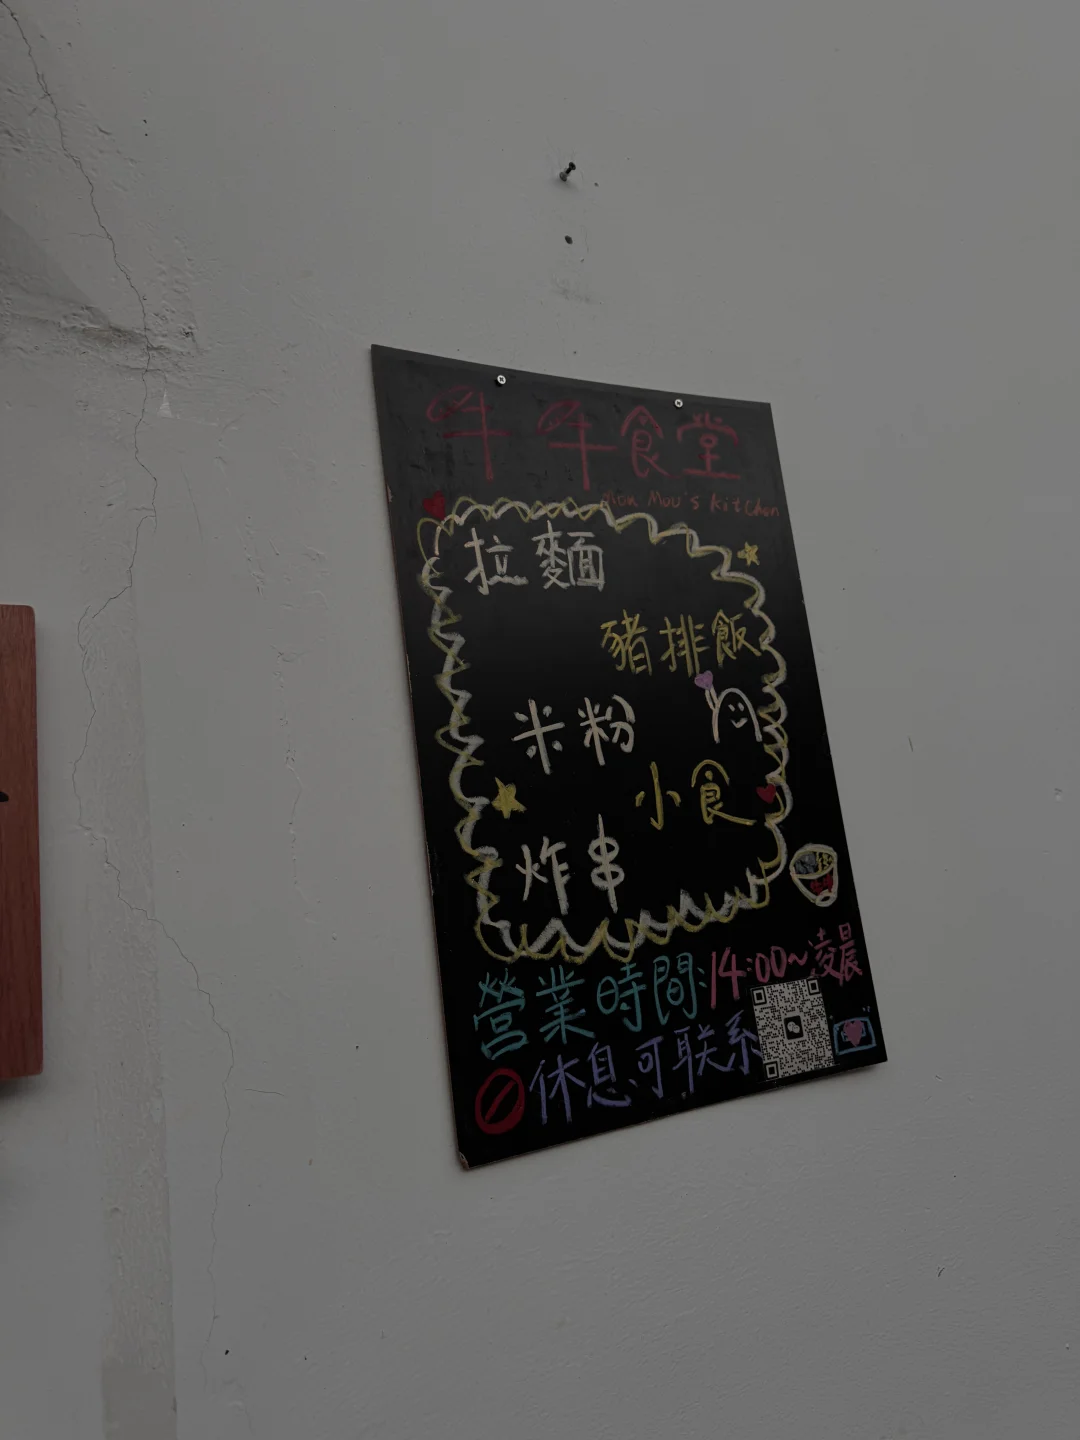 牛牛食堂
Mou's kitchen
拉麵
豬排飯
米粉
小食
炸串
營業時間:14:00~凌晨
休息可联系